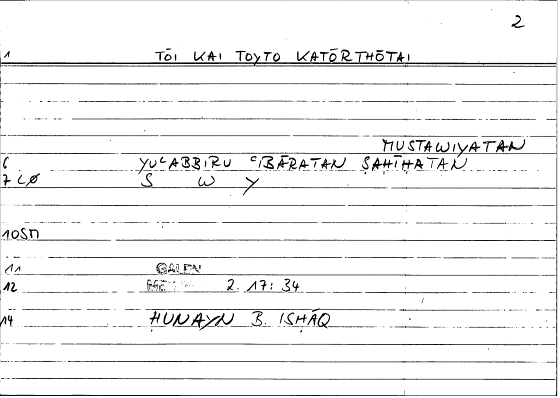 2
1 TŌI KAI TOYTO KATŌRTHŌTAI
MUSTAWIYATAN
6 YUʿABBIRU ʿIBĀRATAN ṢAḤĪḤATAN
7 LØ S W Y
10SM
11 GALEN
12 2. 17: 34
14 ḤUNAYN B. ISḤĀQ